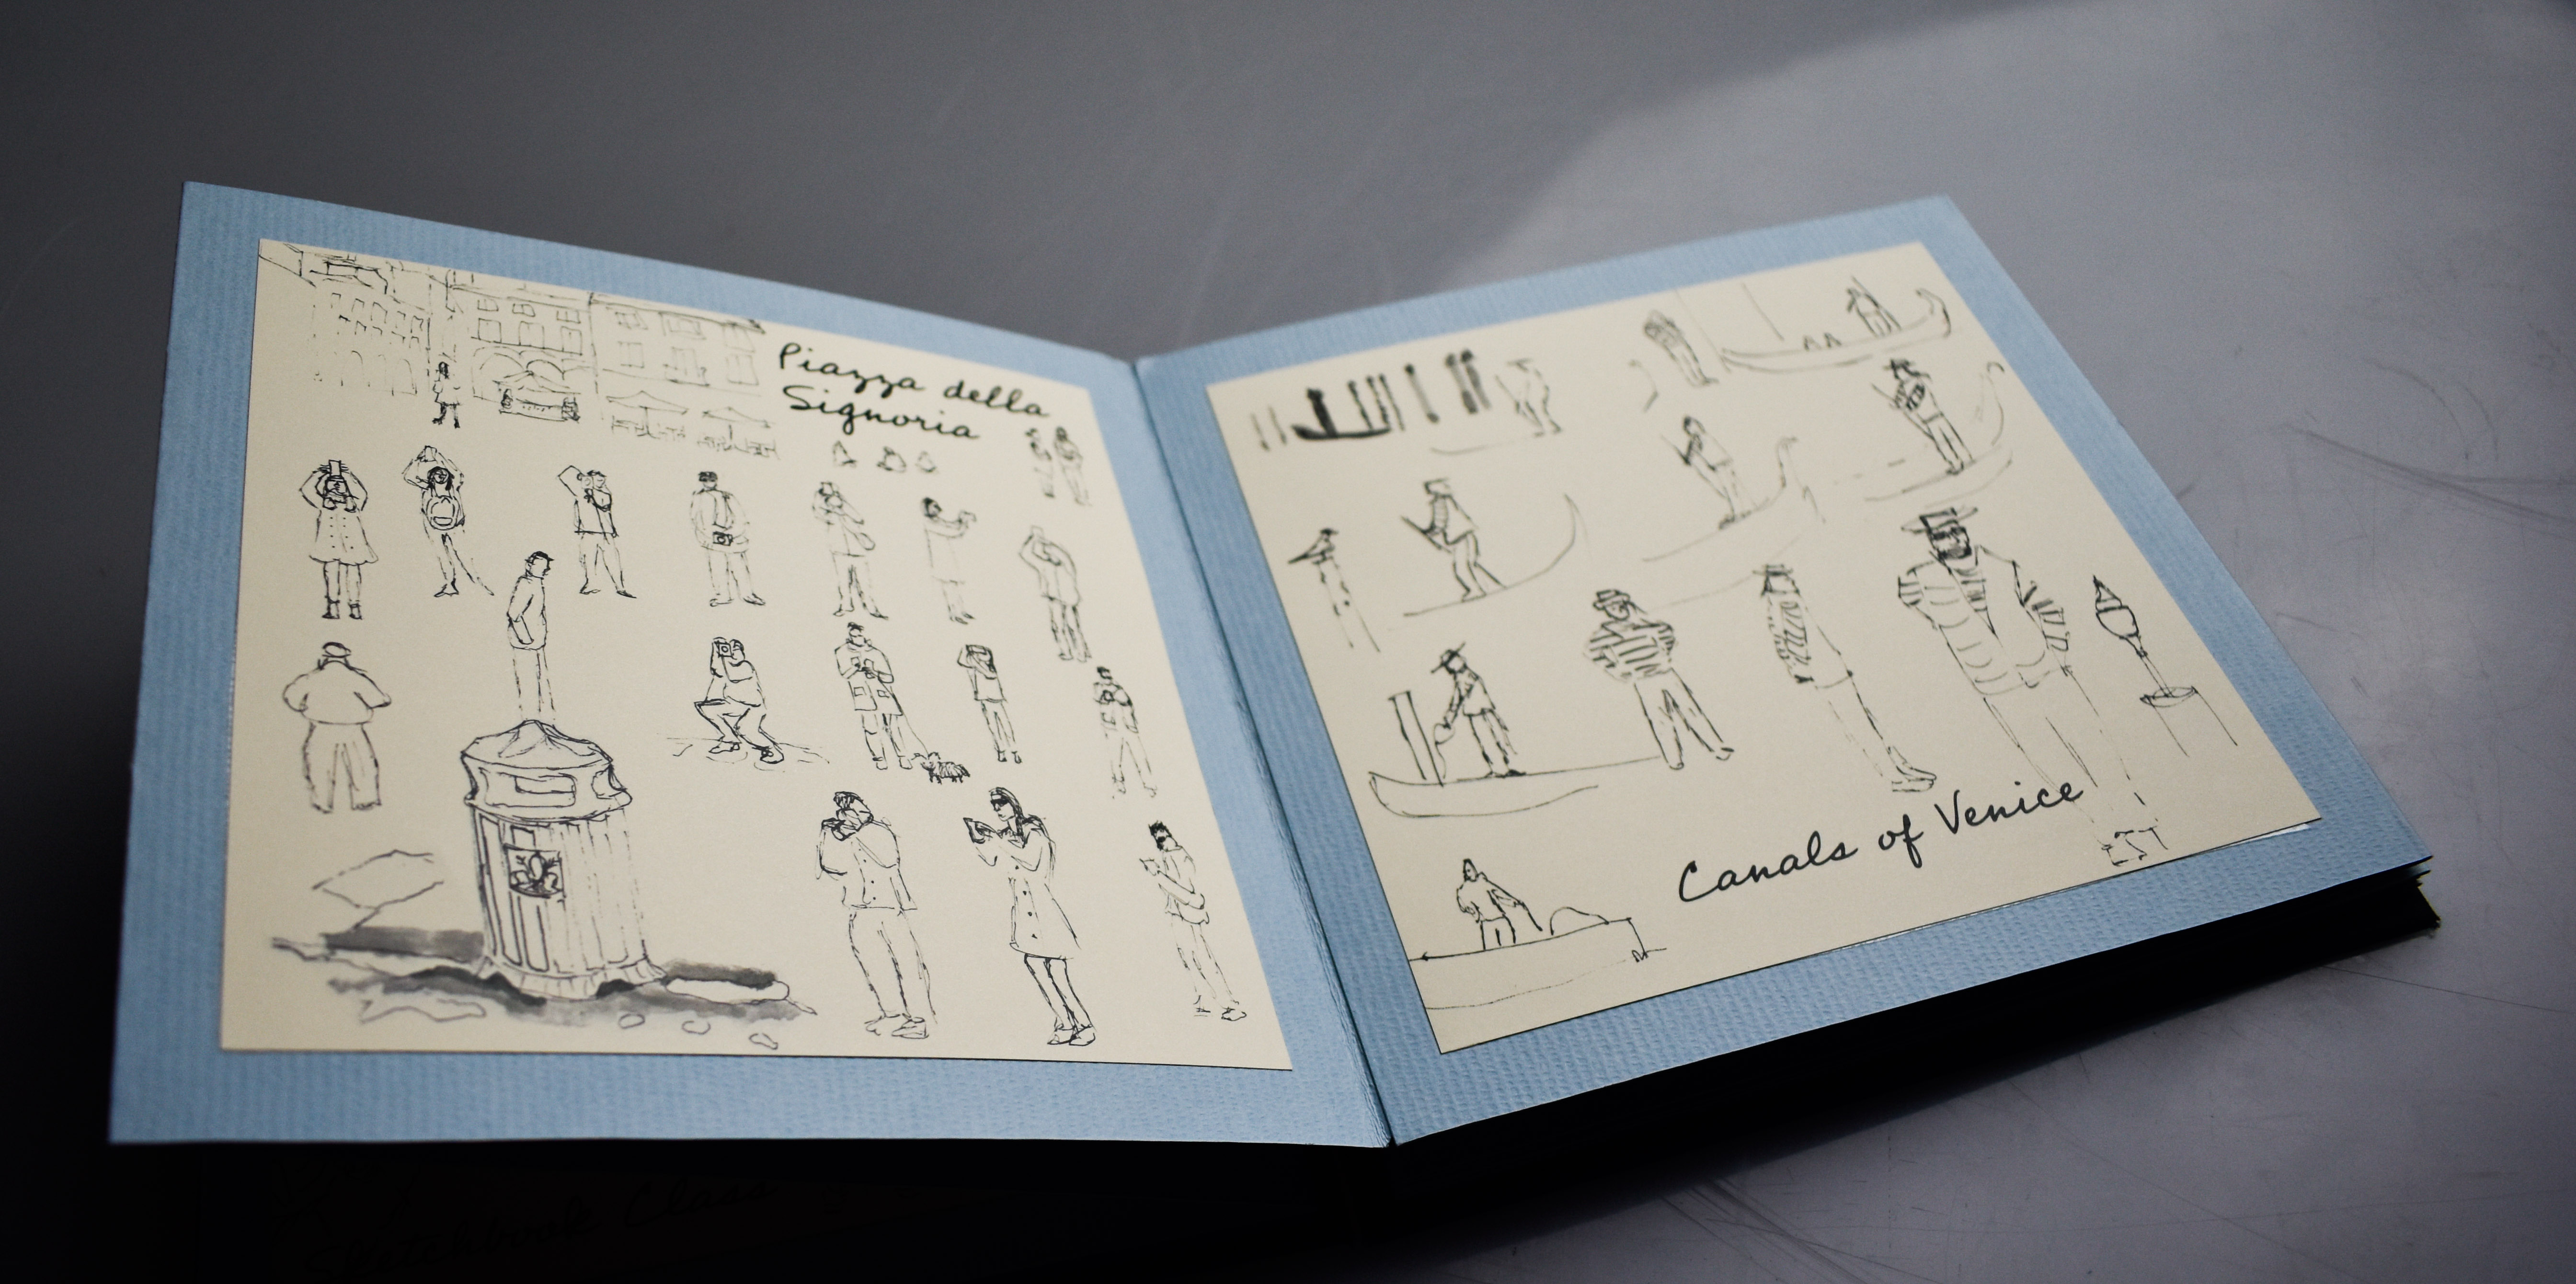 Piazza della
Signoria
Canals of Venice
Sketchbook Class